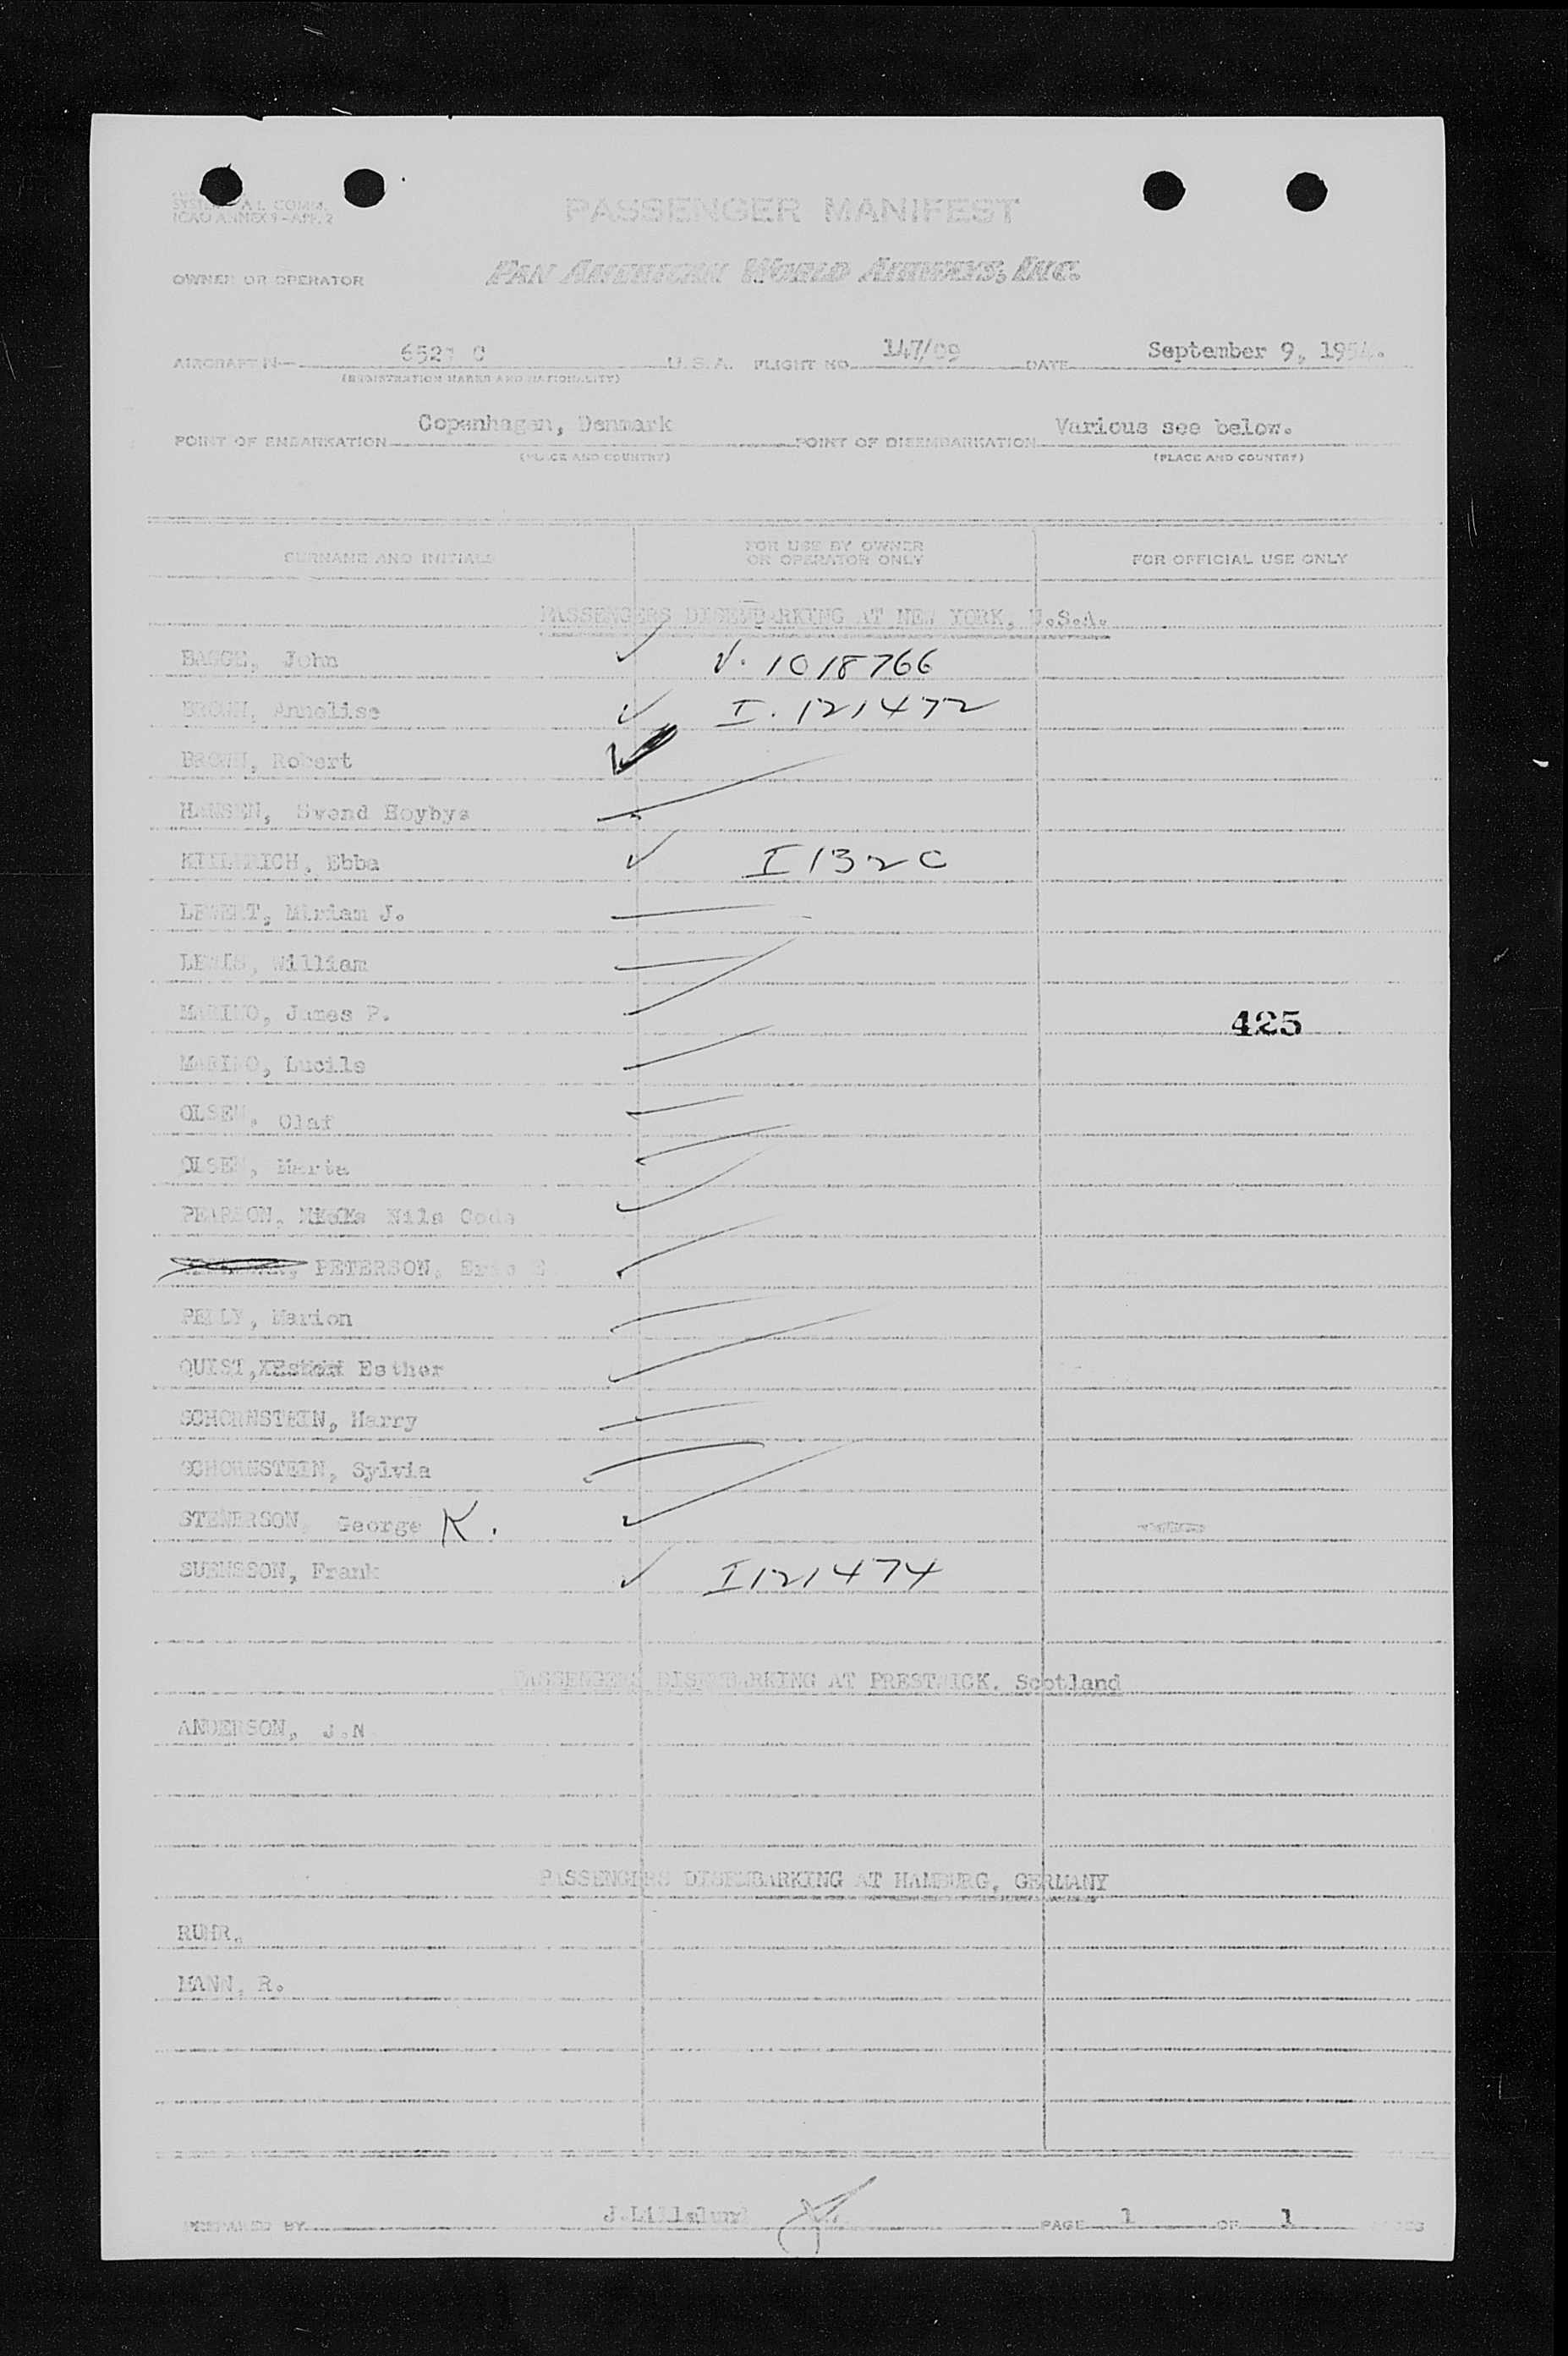 PASSENGER MANIFEST
ICAO ANNEX 9-APP. 2
OWNER OR OPERATOR PAN AMERICAN WORLD AIRWAYS, INC.
AIRCRAFT N— C U.S.A. FLIGHT NO. 147/09 DATE September 9, 1954.
(REGISTRATION MARKS AND NATIONALITY)
POINT OF EMBARKATION Copenhagen, Denmark POINT OF DISEMBARKATION Various see below.
(PLACE AND COUNTRY) (PLACE AND COUNTRY)
SURNAME AND INITIALS FOR USE BY OWNER OR OPERATOR ONLY FOR OFFICIAL USE ONLY
PASSENGERS DISEMBARKING AT NEW YORK, U.S.A.
BAGGE, John V. 1018766
BROWN, Annelise I. 121472
BROWN, Robert
HANSEN, Svend Hoybye
Ebba I 132 C
Miriam J.
LEWIS, William
MARINO, James P.
425
MARINO, Lucile
OLSEN, Olaf
OLSEN, Marie
PEARSON, Nils
PETERSON, Eric E
Marion
QUIST, Esther
SCHORNSTEIN, Harry
SCHORNSTEIN, Sylvia
STENERSON, George K.
SUENSSON, Frank I 121474
PASSENGERS DISEMBARKING AT PRESTWICK. Scotland
ANDERSON, J.N
PASSENGERS DISEMBARKING AT HAMBURG, GERMANY
RUHR.
MANN, R.
PREPARED BY J.Lillelund PAGE 1 OF 1 PAGES